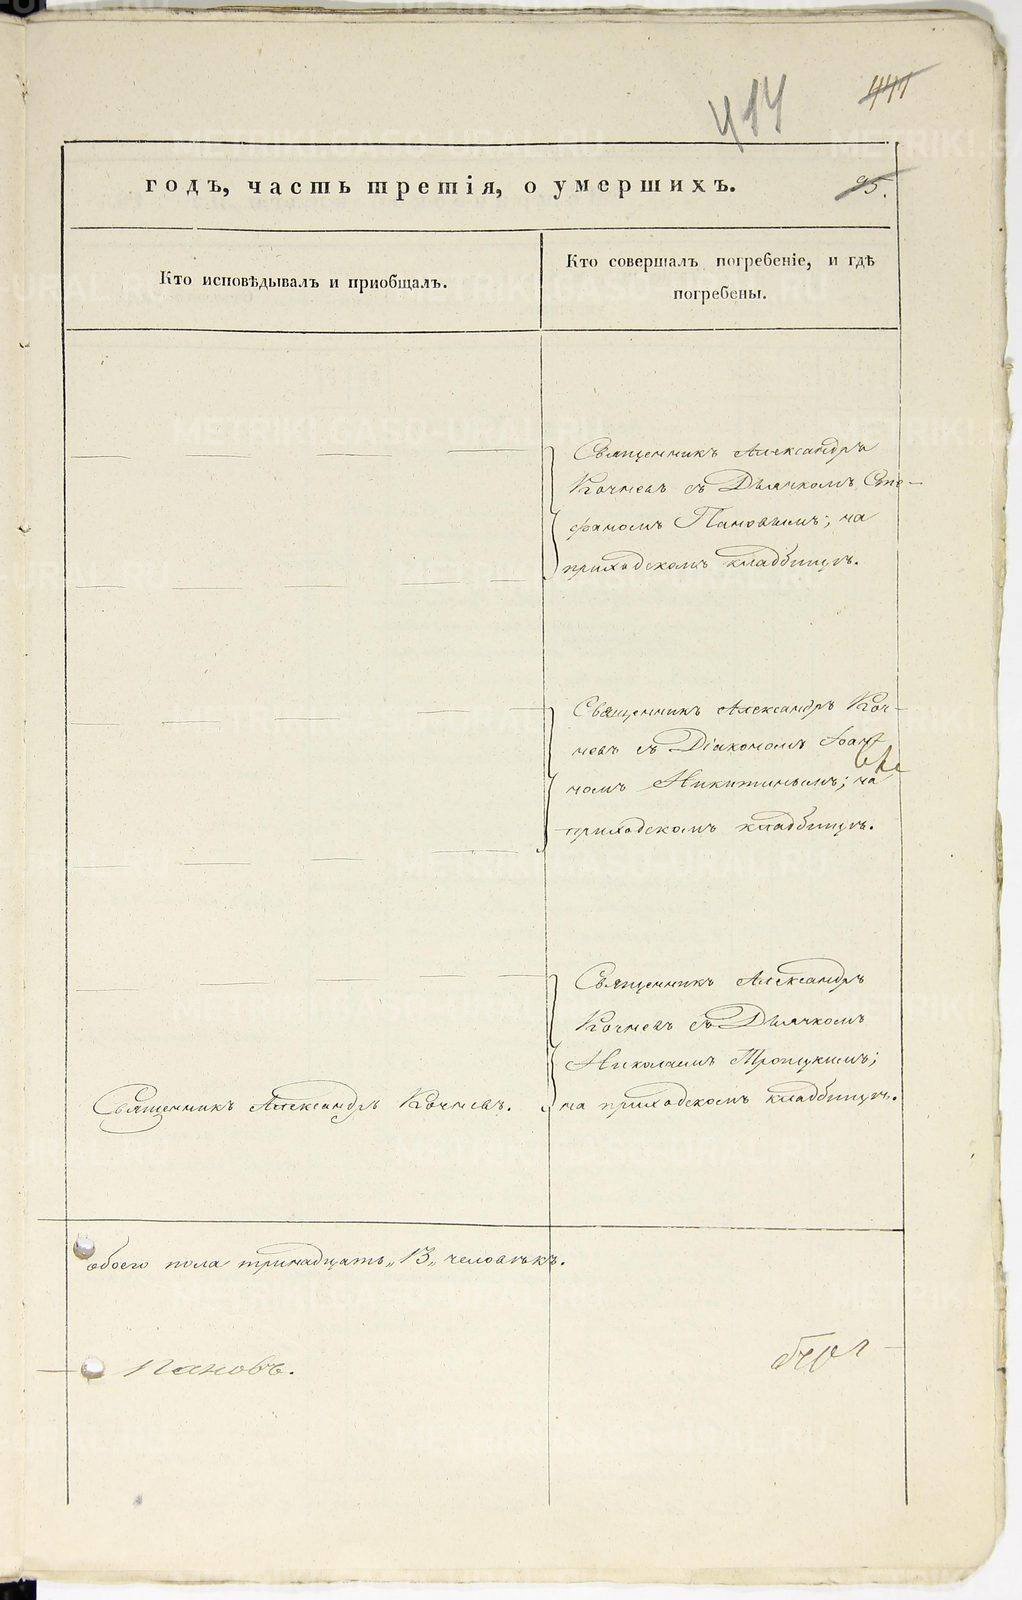 414
441
годъ, часть третія, о умершихъ.
95.
Кто исповѣдывалъ и приобщалъ.
Кто совершалъ погребеніе, и гдѣ
погребены.
Священникъ Александръ
Кочневъ съ Дьячкомъ Сте-
фаномъ Пановымъ; на
приходскомъ кладбищѣ.
Священникъ Александръ Коч-
невъ съ Діакономъ Іоан-
номъ Никитинымъ; на
приходскомъ кладбищѣ.
Священникъ Александръ
Кочневъ съ Дьячкомъ
Николаемъ Троицкимъ;
на приходскомъ кладбищѣ.
Священникъ Александръ Кочневъ.
обоего пола тринадцать „13„ человѣкъ.
Пановъ.
METRIKI.GASO-URAL.RU